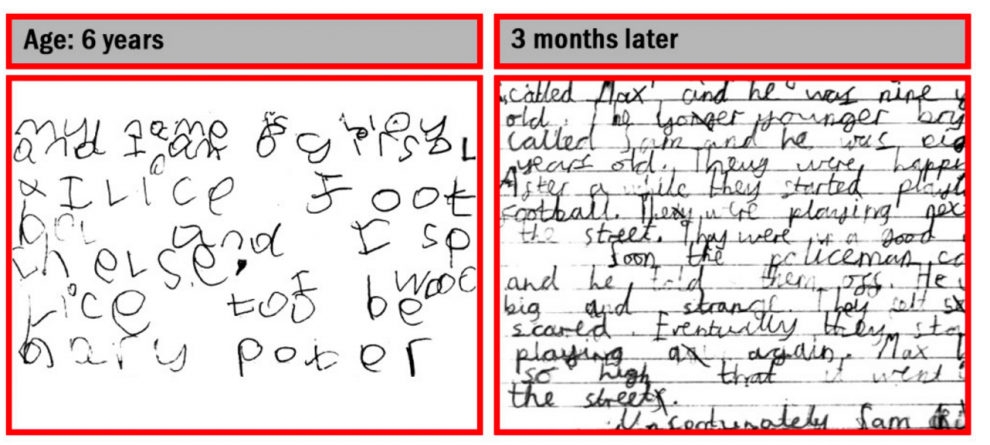 Age: 6 years
my name is
and I am 6 years
I Lice Foot
and I sp
chelse,
I wood
Lice too be
hary poter
3 months later
called Max' and he was nine
old. The yonger younger boy
called Sam and he was
years old. They were happ
After a while they started play
football. They were playing nex
the street. They were in a good
Soon the policeman co
and he told them off. He
big and strang. They felt
scared. Eventually they sto
playing again. Max
so high that it went
the street.
Unfortunately Sam